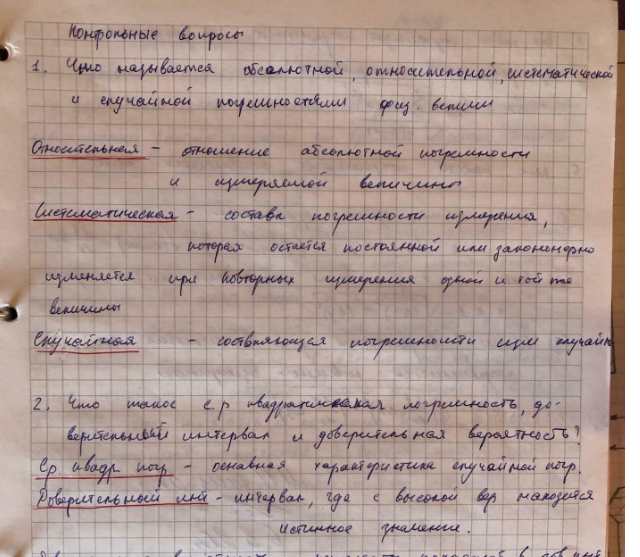 Контрольные вопросы
1. Что называется абсолютной, относительной, систематической
и случайной погрешностями физ. величин
Относительная - отношение абсолютной погрешности
и измеряемой величины
Систематическая - составл погрешности измерения,
которая остается постоянной или закономерно
изменяется при повторных измерения одной и той же
величины
Случайная - составляющая погрешности изм случайн
2. Что такое с.р квадратическая погрешность, до-
верительный интервал и доверительная вероятность?
Ср квадр погр - основная характеристика случайной погр.
Доверительный инт - интервал, где с высокой вер находится
истинное значение.